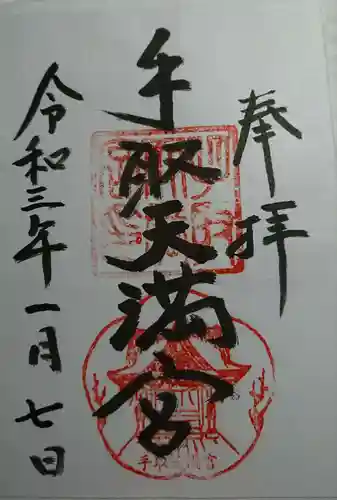 奉拝
手取天満宮
令和三年一月七日